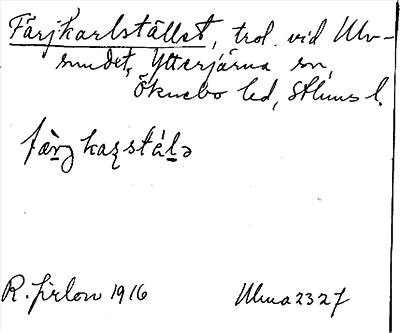 Färjkarlstället, trol. vid Ulv-
sundet, Ytterjärna sn,
Öknebo hd, Sthlms l.
fær̀j kaʂstáḷə
R. Jirlow 1916 Ulma 2327